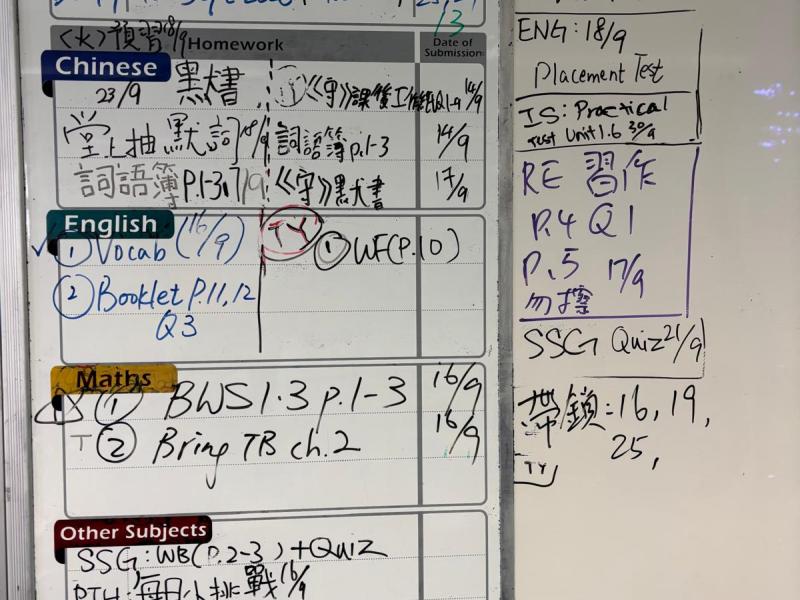 13
<火>預習18/9
Homework
Date of Submission
Chinese
23/9 黑犬書
①《守》課後工作紙Q1-9 14/9
堂上抽默詞18/9
詞語簿p.1-3 14/9
詞語簿p.1-3 17/9
《守》默犬書 17/9
English
① Vocab (16/9)
② Booklet P.11,12
Q3
TY
① WF(P.10)
Maths
① BWS1.3 p.1-3 16/9
T ② Bring TB ch.2 16/9
Other Subjects
SSG: WB(P.2-3) + Quiz
PTH: 每日小挑戰 16/9
ENG: 18/9
Placement Test
IS: Practical
Test Unit 1.6 30/9
RE 習作
P.4 Q1
P.5 17/9
勿擦
SSG Quiz 21/9
帶鎖: 16, 19,
25,
TY